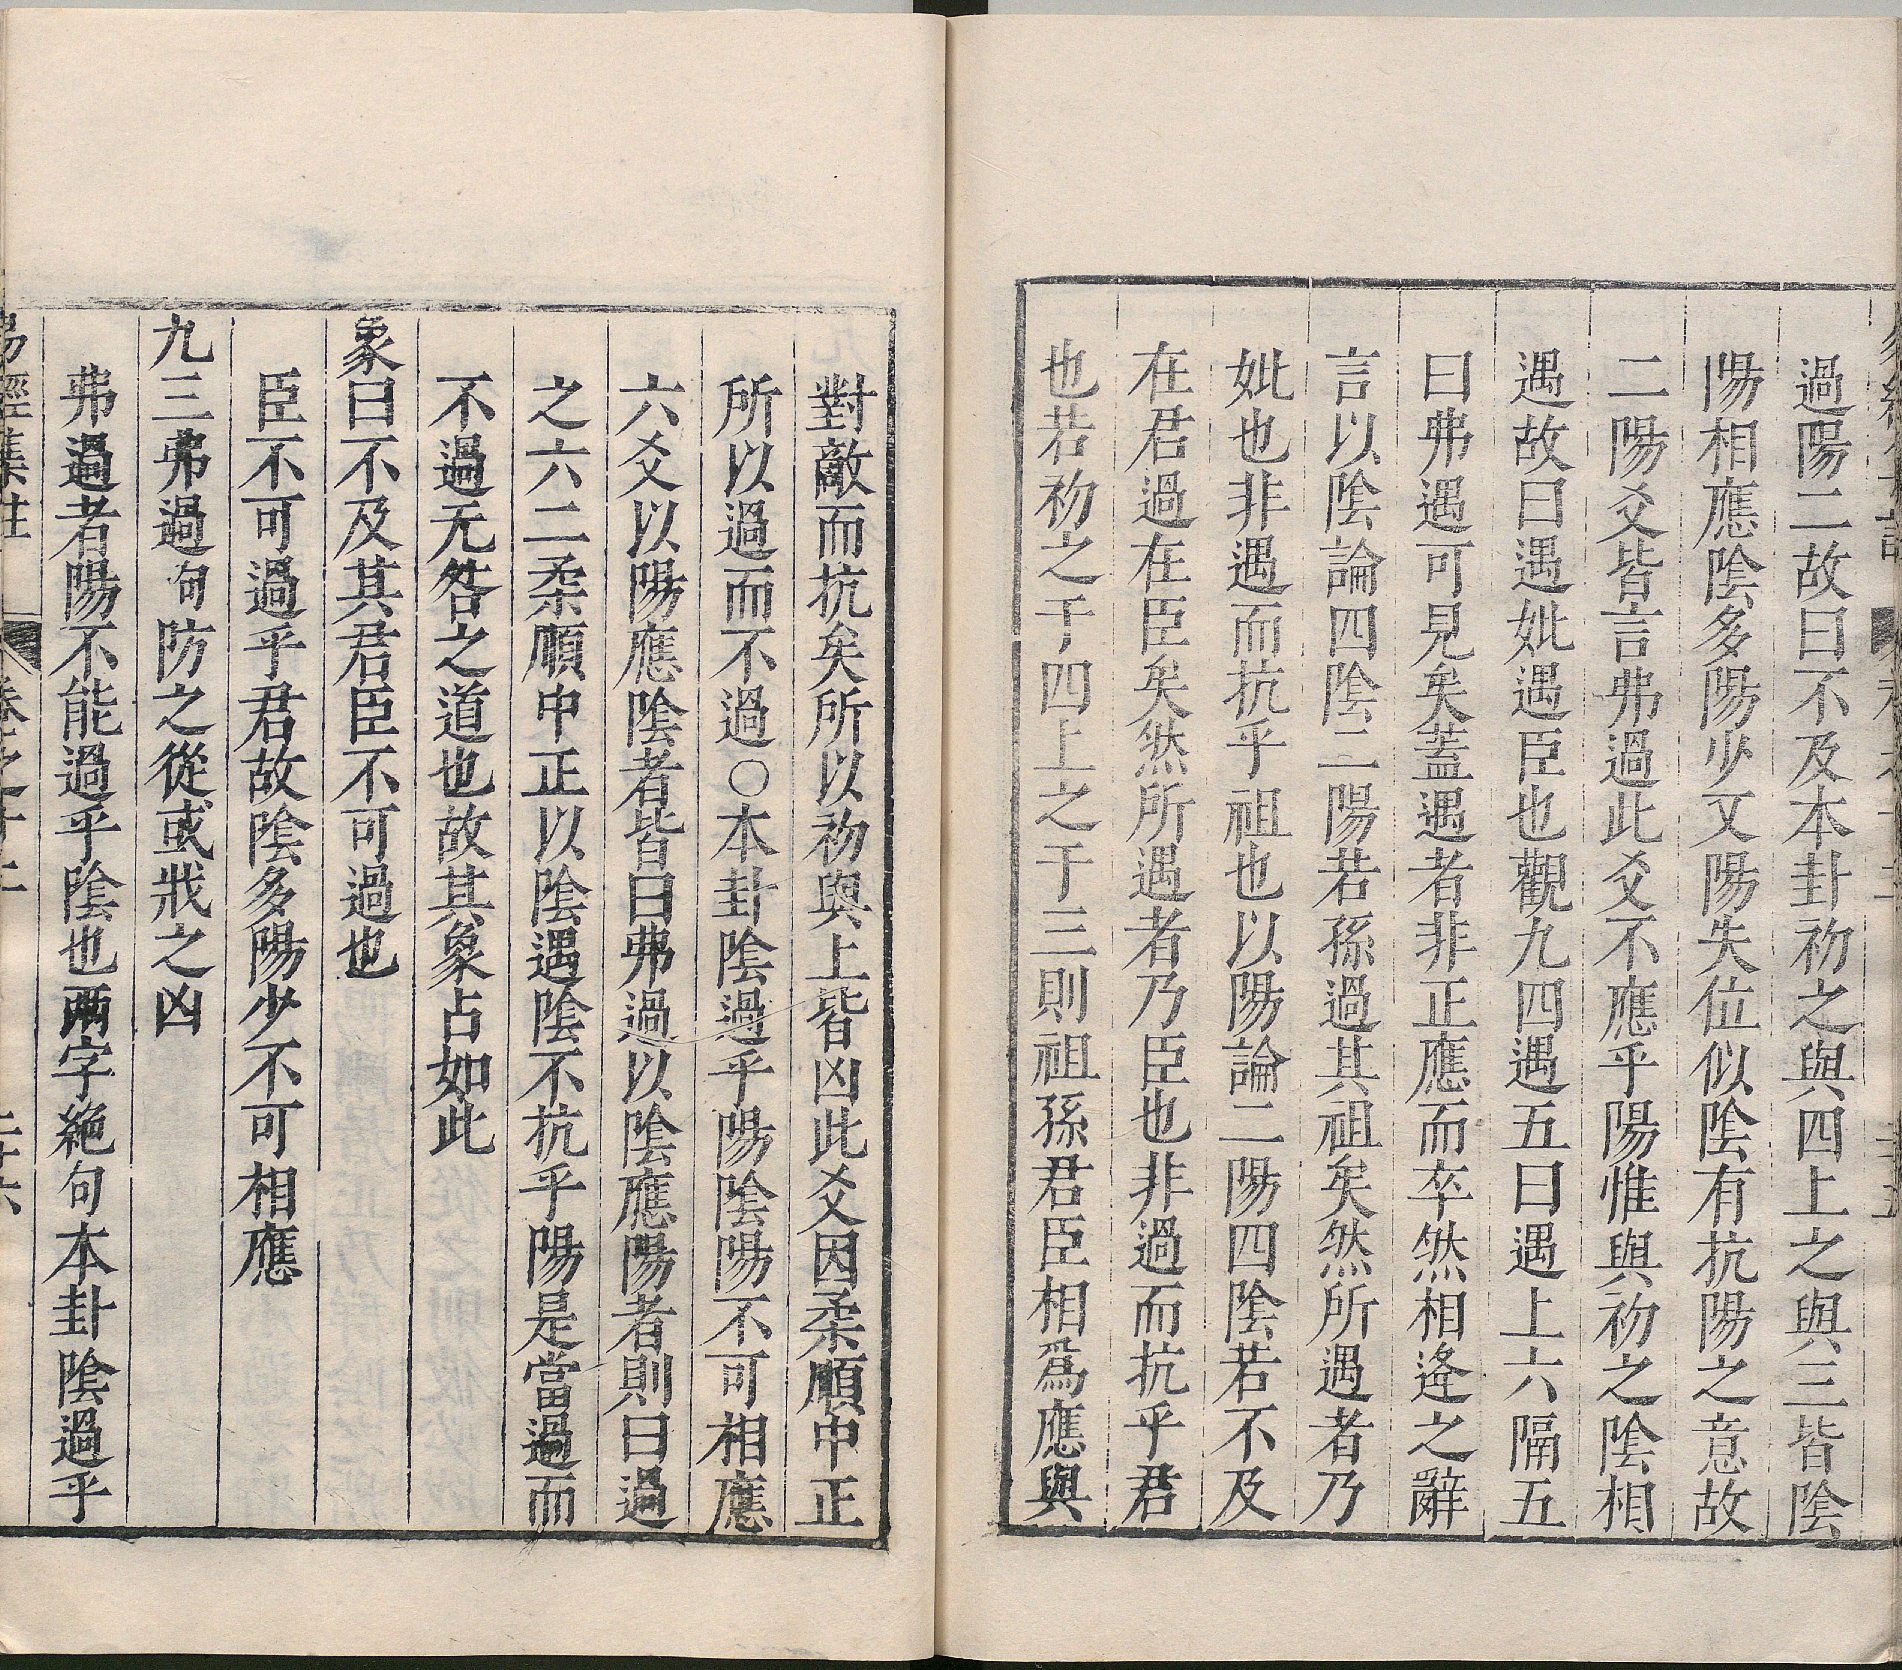 過陽二故曰不及本卦初之與四上之與三皆陰
陽相應陰多陽少又陽失位似陰有抗陽之意故
二陽爻皆言弗過此爻不應乎陽惟與初之陰相
遇故曰遇妣遇臣也觀九四遇五曰遇上六隔五
曰弗遇可見矣蓋遇者非正應而卒然相逢之辭
言以陰論四陰二陽若孫過其祖矣然所遇者乃
妣也非遇而抗乎祖也以陽論二陽四陰若不及
在君過在臣矣然所遇者乃臣也非過而抗乎君
也若初之于四上之于三則祖孫君臣相爲應與
對敵而抗矣所以初與上皆凶此爻因柔順中正
所以過而不過○本卦陰過乎陽陰陽不可相應
六爻以陽應陰者皆曰弗過以陰應陽者則曰過
之六二柔順中正以陰遇陰不抗乎陽是當過而
不過无咎之道也故其象占如此
象曰不及其君臣不可過也
臣不可過乎君故陰多陽少不可相應
九三弗過句防之從或戕之凶
弗過者陽不能過乎陰也兩字絶句本卦陰過乎
易經集註 卷之十二 二十六